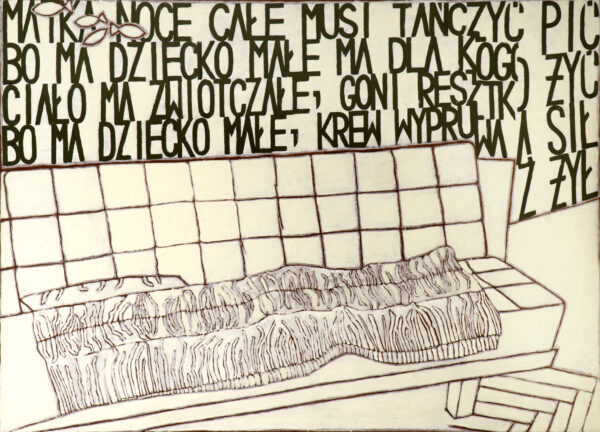 MATKA NOCE CAŁE MUSI TANCZYĆ PIĆ
BO MA DZIECKO MAŁE MA DLA KOGO ŻYĆ
CIAŁO MA ZWIOTCZAŁE, GONI RESZTKĄ SIŁ
BO MA DZIECKO MAŁE, KREW WYPRUWA Z ŻYŁ